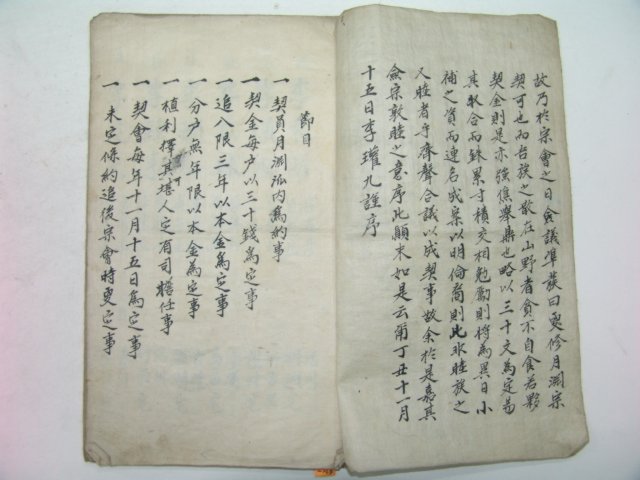 故乃於宗會之日僉議準發曰更修月淵宗
契可也而吾族之散在山野者貪不自食若夥
契金則是亦強焦舉鼎也略以三十文為定易
其取合而銖累寸積交相勉勵則將為異日小
補之資而連名成案以明倫商則此非睦族之
又睦者乎齊聲合議以成契事故余於是嘉其
僉宗敦睦之意序此顛末如是云爾丁丑十一月
十五日李瓘九謹序
節目
一 契員月淵派內為約事
一 契金每戶以三十錢為定事
一 追入限三年以本金為定事
一 分戶無年限以本金為定事
一 植利擇其堪人定有司擔任事
一 契會每年十一月十五日為定事
一 未定條約追後宗會時更定事